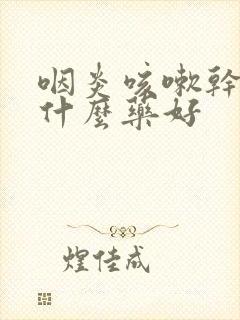 咽炎咳嗽幹
什麼藥好
煌佳成